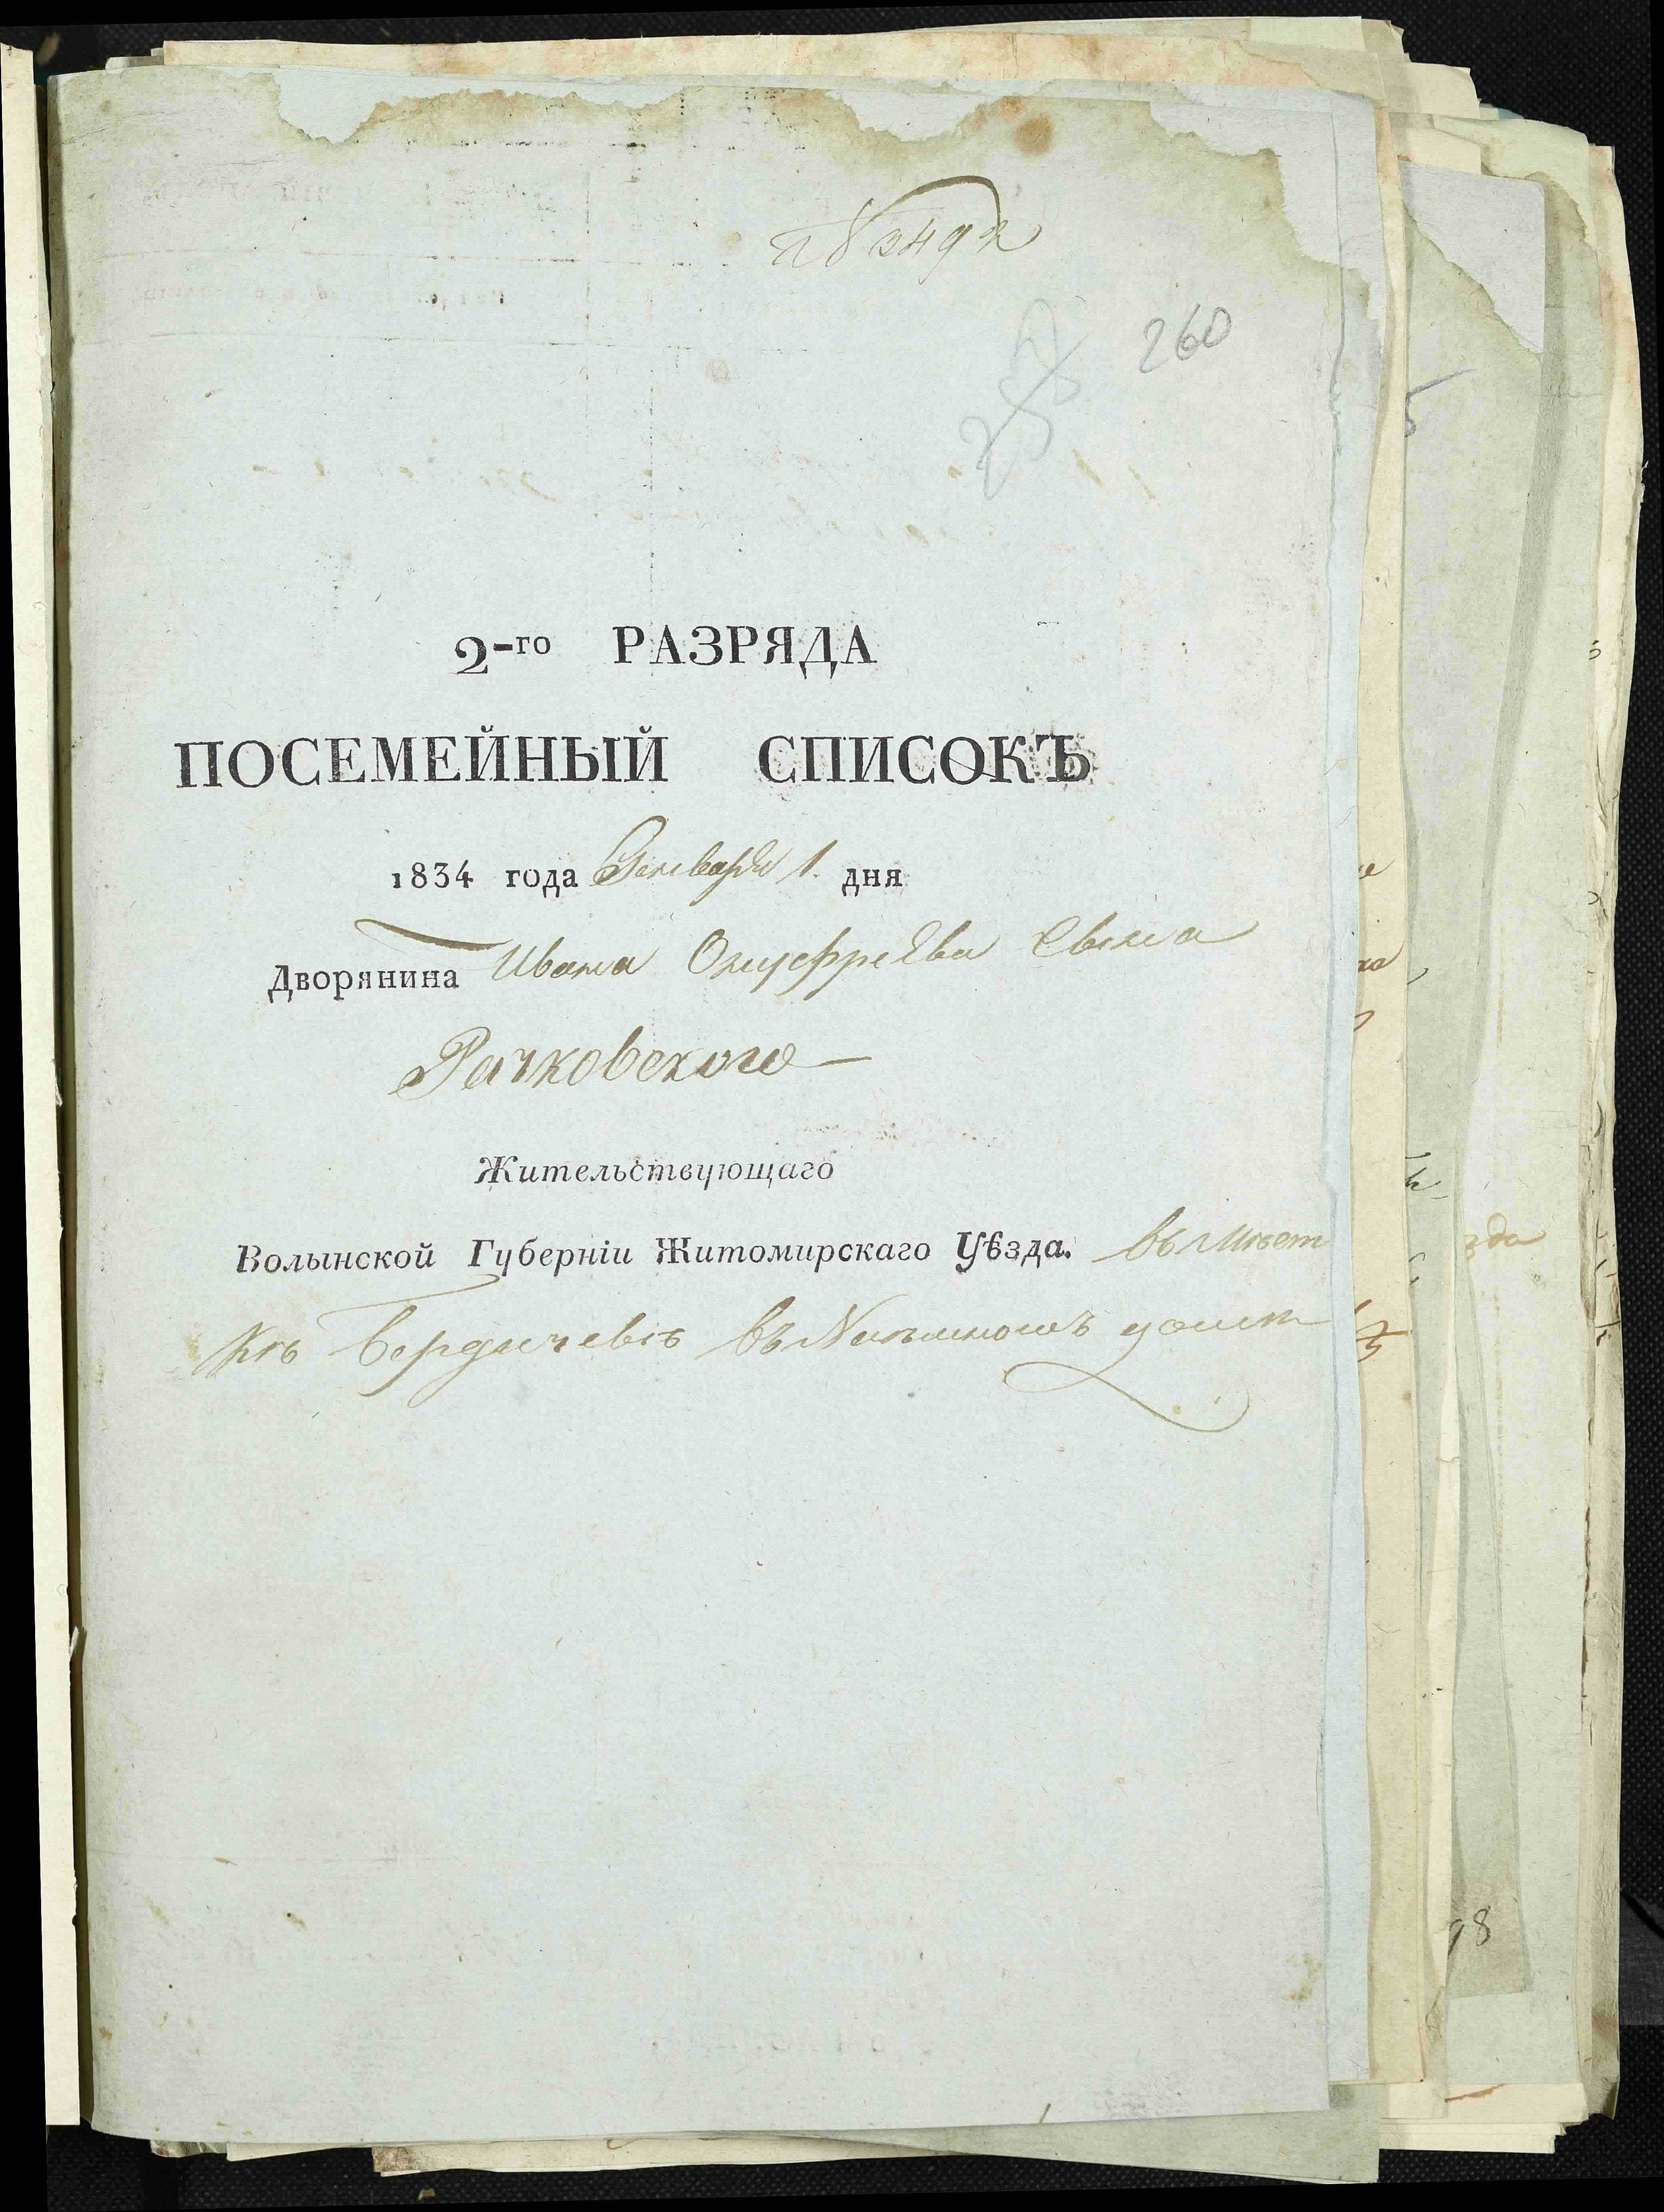 260
2-го РАЗРЯДА
ПОСЕМЕЙНЫЙ СПИСОКЪ
1834 года Генваря 1. дня
Дворянина Ивана Онуфрiева Сына
Рачковского
Жительствующаго
Волынской Губернiи Житомирскаго Уѣзда. въ мѣст
кѣ Бердичевѣ въ Наемномъ домѣ